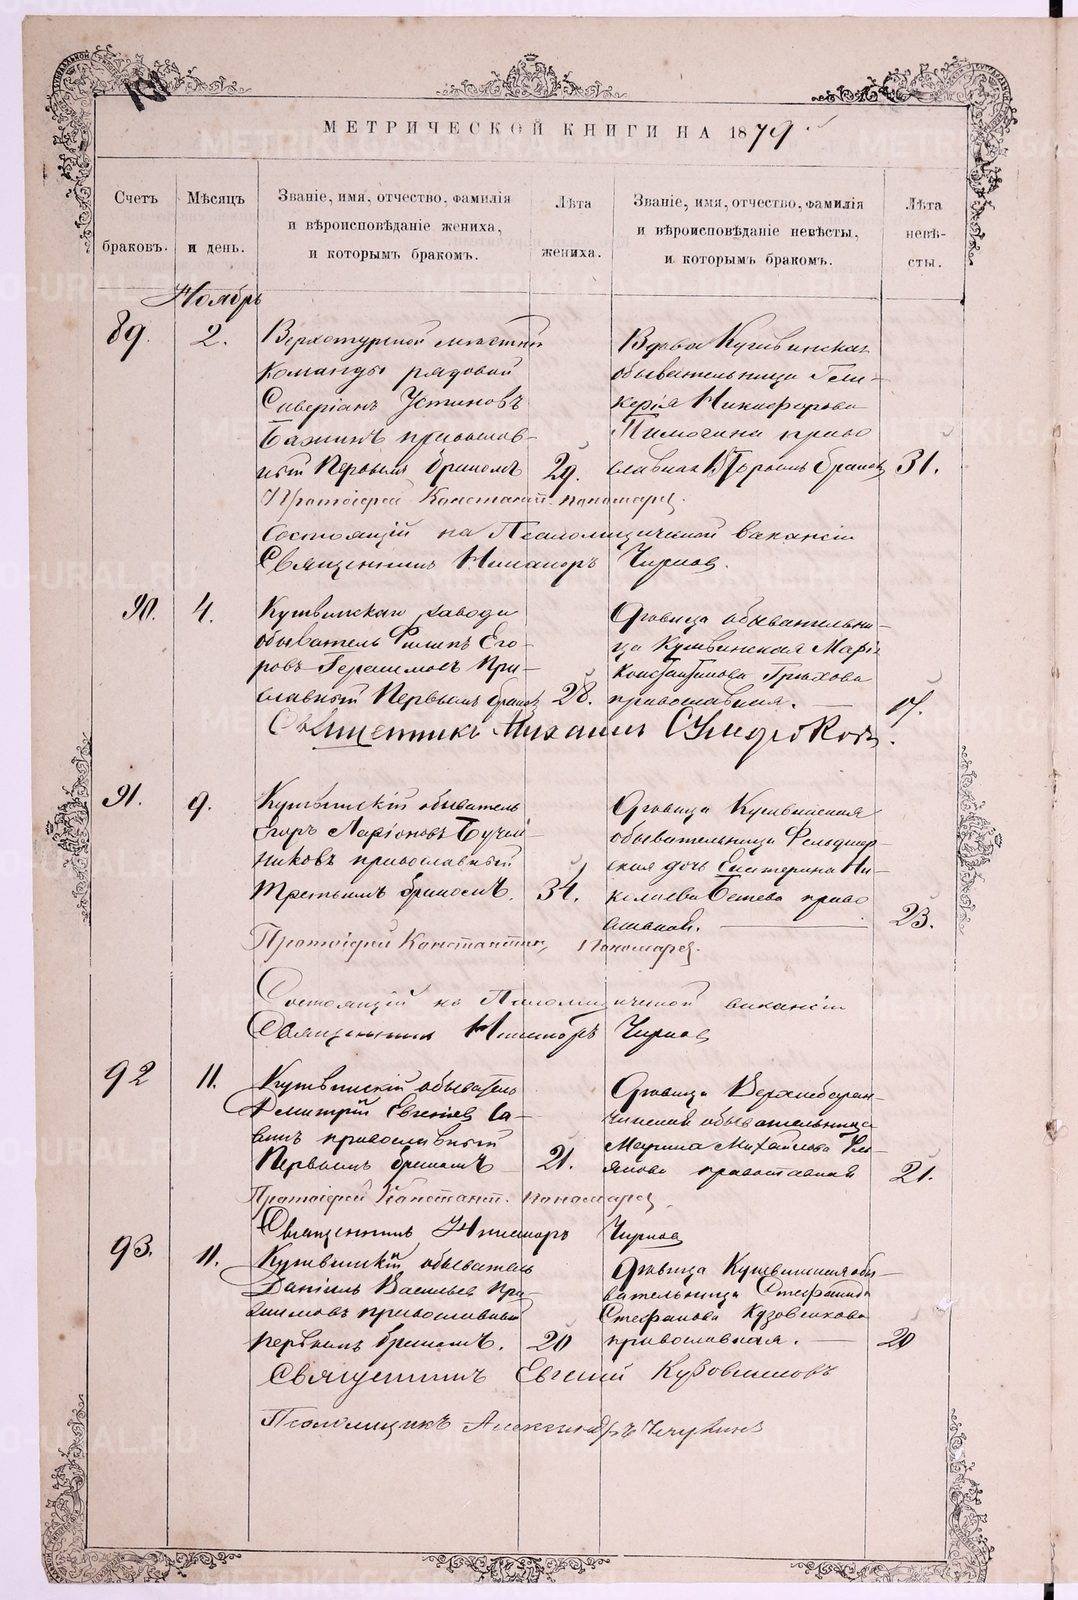 МЕТРИЧЕСКОЙ КНИГИ НА 1879
Счетъ браковъ.
Мѣсяцъ и день.
Званіе, имя, отчество, фамилія
и вѣроисповѣданіе жениха,
и которымъ бракомъ.
Лѣта жениха.
Званіе, имя, отчество, фамилія
и вѣроисповѣданіе невѣсты,
и которымъ бракомъ.
Лѣта
невѣ-
сты.
Ноябрь
89. 2.
Верхотурской мѣстной
команды рядовой
Саверіанъ Устиновъ
Бажинъ православ-
ный Первымъ бракомъ 29.
Вдова Кушвинская
обывательница Гли-
керія Никифорова
православная Вторымъ бракомъ 31.
Протоіерей Констант. Пономарев.
Состоящій на Псаломщической вакансіи
Священникъ Никаноръ Чирков.
90. 4.
Кушвинскаго завода
обыватель Филипъ Его-
ровъ Герасимовъ Пра-
славный Первымъ бракомъ 28.
Дѣвица обывательни-
ца Кушвинская Марія
Константинова Грѣхова
православная. 17.
Священникъ Михаилъ
91. 9.
Кушвинскій обыватель
Егоръ Ларіоновъ Бучел-
никовъ православный
Третьимъ бракомъ. 34.
Дѣвица Кушвинская
обывательница Фельдшер-
ская дочь Екатерина Ни-
колаева право
славной. 23.
Протоіерей Константин Пономарев.
Состоящій на Псаломщической вакансіи
Священникъ Никаноръ Чирков
92 11.
Кушвинскій обыватель
Димитрій Евгеніев Са-
винъ православный
Первымъ бракомъ 21.
Дѣвица Верхнебаран-
чинская обывательница
Марина Михайлова
православная 21.
Протоіерей Констант. Пономарев.
Священникъ Никаноръ Чирков
93. 11.
Кушвинскій обыватель
Даніилъ Васильев
православный
первымъ бракомъ. 20
Дѣвица Кушвинская обы-
вательница Стефанида
Стефанова Кузовникова
православная. 20
Священникъ Евгений Кузовниковъ
Псаломщикъ Александръ Чечулинъ
METRIKI.GASO-URAL.RU